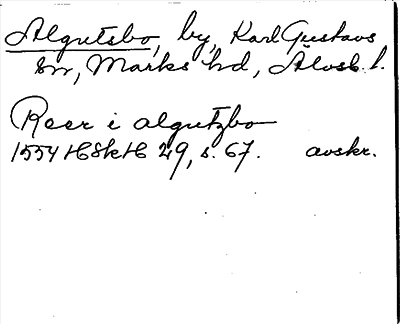 Algutsbo, by, Karl Gustavs
sn, Marks hd, Älvsb. l.
Reer i algutzbo
1554 HSkH 29, s. 67. avskr.